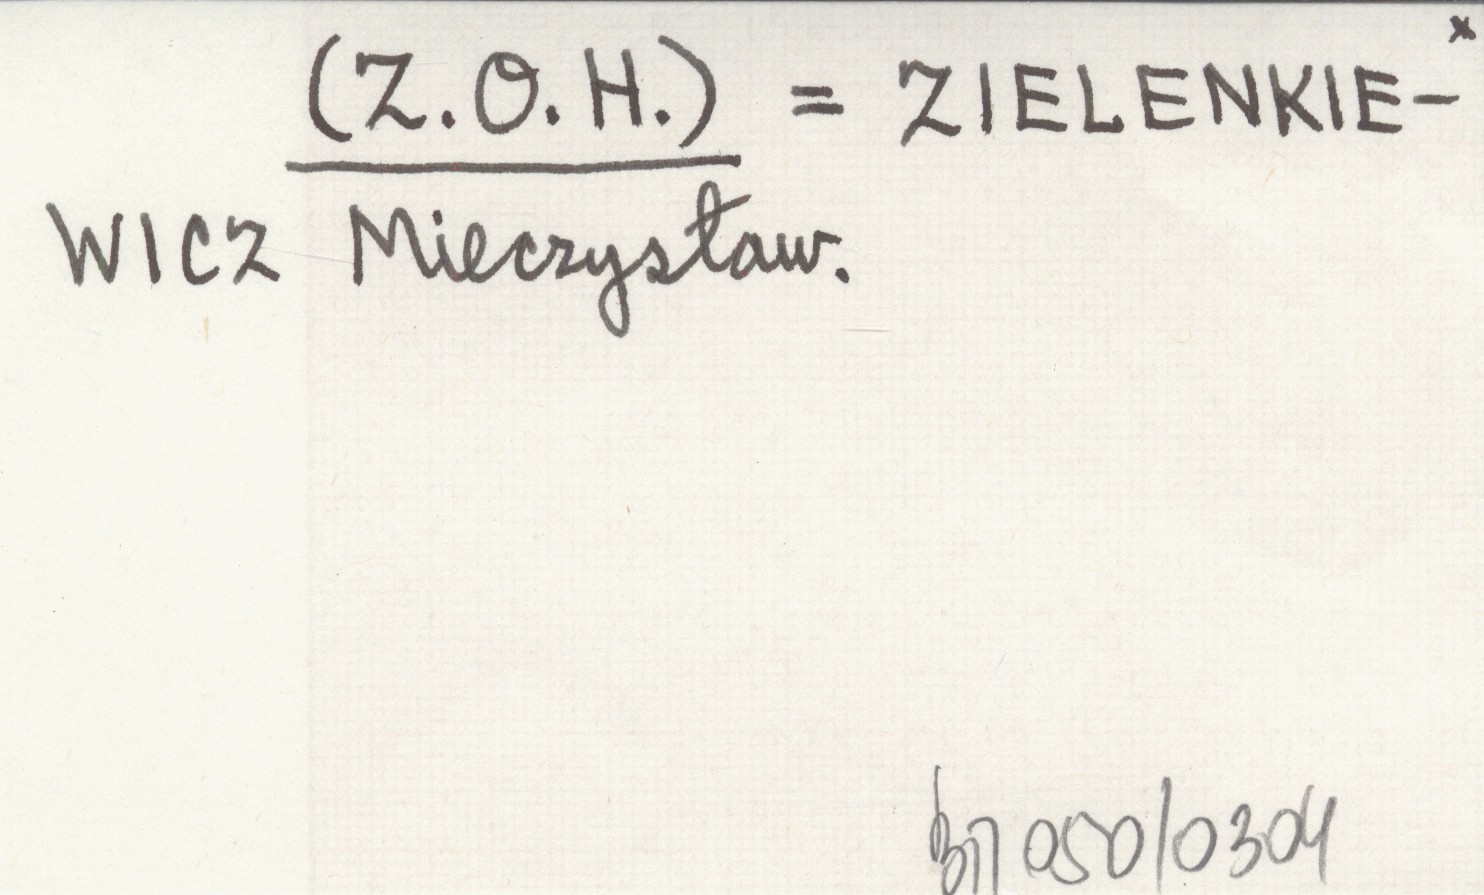 x
(Z.O.H.) = ZIELENKIE-
WICZ Mieczysław.
050/0304